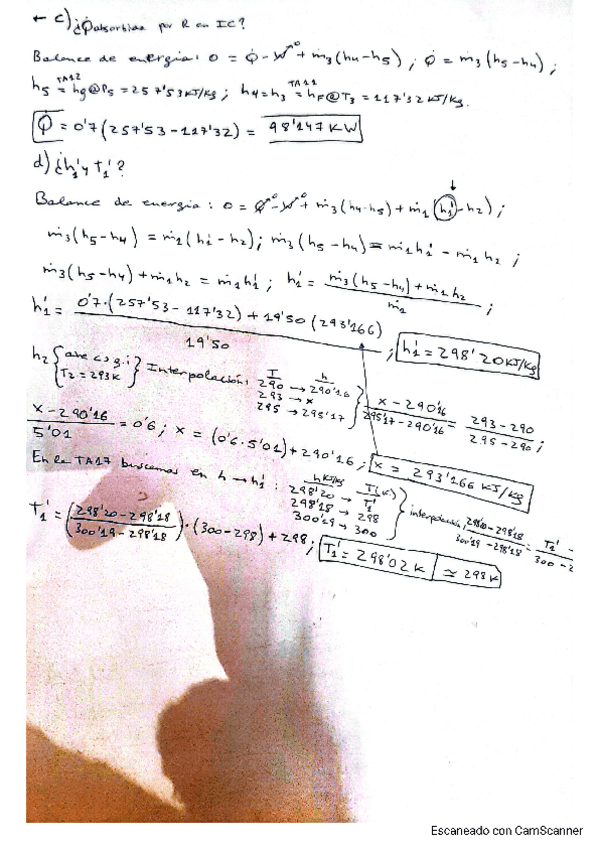 ← c) ¿Q̇ absorbida por R en IC?
Balance de energía: 0 = Q̇ - Ẇ⁰ + ṁ₃(h₄-h₅) ; Q̇ = ṁ₃(h₅-h₄) ;
h₅ =^TA12 hg@P₅ = 257'53 kJ/kg ; h₄=h₃ =^TA11 hF@T₃ = 117'32 kJ/kg.
Q̇ = 0'7(257'53-117'32) = 98'147 KW
d) ¿h₁' y T₁'?
Balance de energía : 0 = Q̇⁰ - Ẇ⁰ + ṁ₃(h₄-h₅) + ṁ₁(h₁'-h₂) ;
ṁ₃(h₅-h₄) = ṁ₁(h₁'-h₂) ; ṁ₃(h₅-h₄) = ṁ₁h₁' - ṁ₁h₂ ;
ṁ₃(h₅-h₄) + ṁ₁h₂ = ṁ₁h₁' ; h₁' = ṁ₃(h₅-h₄) + ṁ₁h₂ / ṁ₁ ;
h₁' = 0'7·(257'53-117'32) + 19'50(293'166) / 19'50 ; h₁' = 298'20 kJ/kg
h₂ { aire c.g.i
T₂ = 293K } Interpolación:
T h
290 → 290'16
293 → x
295 → 295'17
x - 290'16 / 295'17 - 290'16 = 293-290 / 295-290 ;
x - 290'16 / 5'01 = 0'6 ; x = (0'6·5'01) + 290'16 ; x = 293'166 kJ/kg
En la TA17 buscamos en h → h₁' :
h kJ/kg T(K)
298'20 → T₁'
298'18 → 298
300'19 → 300
interpolación, 298'20-298'18 / 300'19-298'18 = T₁' - / 300 - 2
T₁' = (298'20-298'18 / 300'19-298'18)·(300-298) + 298 ; T₁' = 298'02 K ≃ 298 K
Escaneado con CamScanner